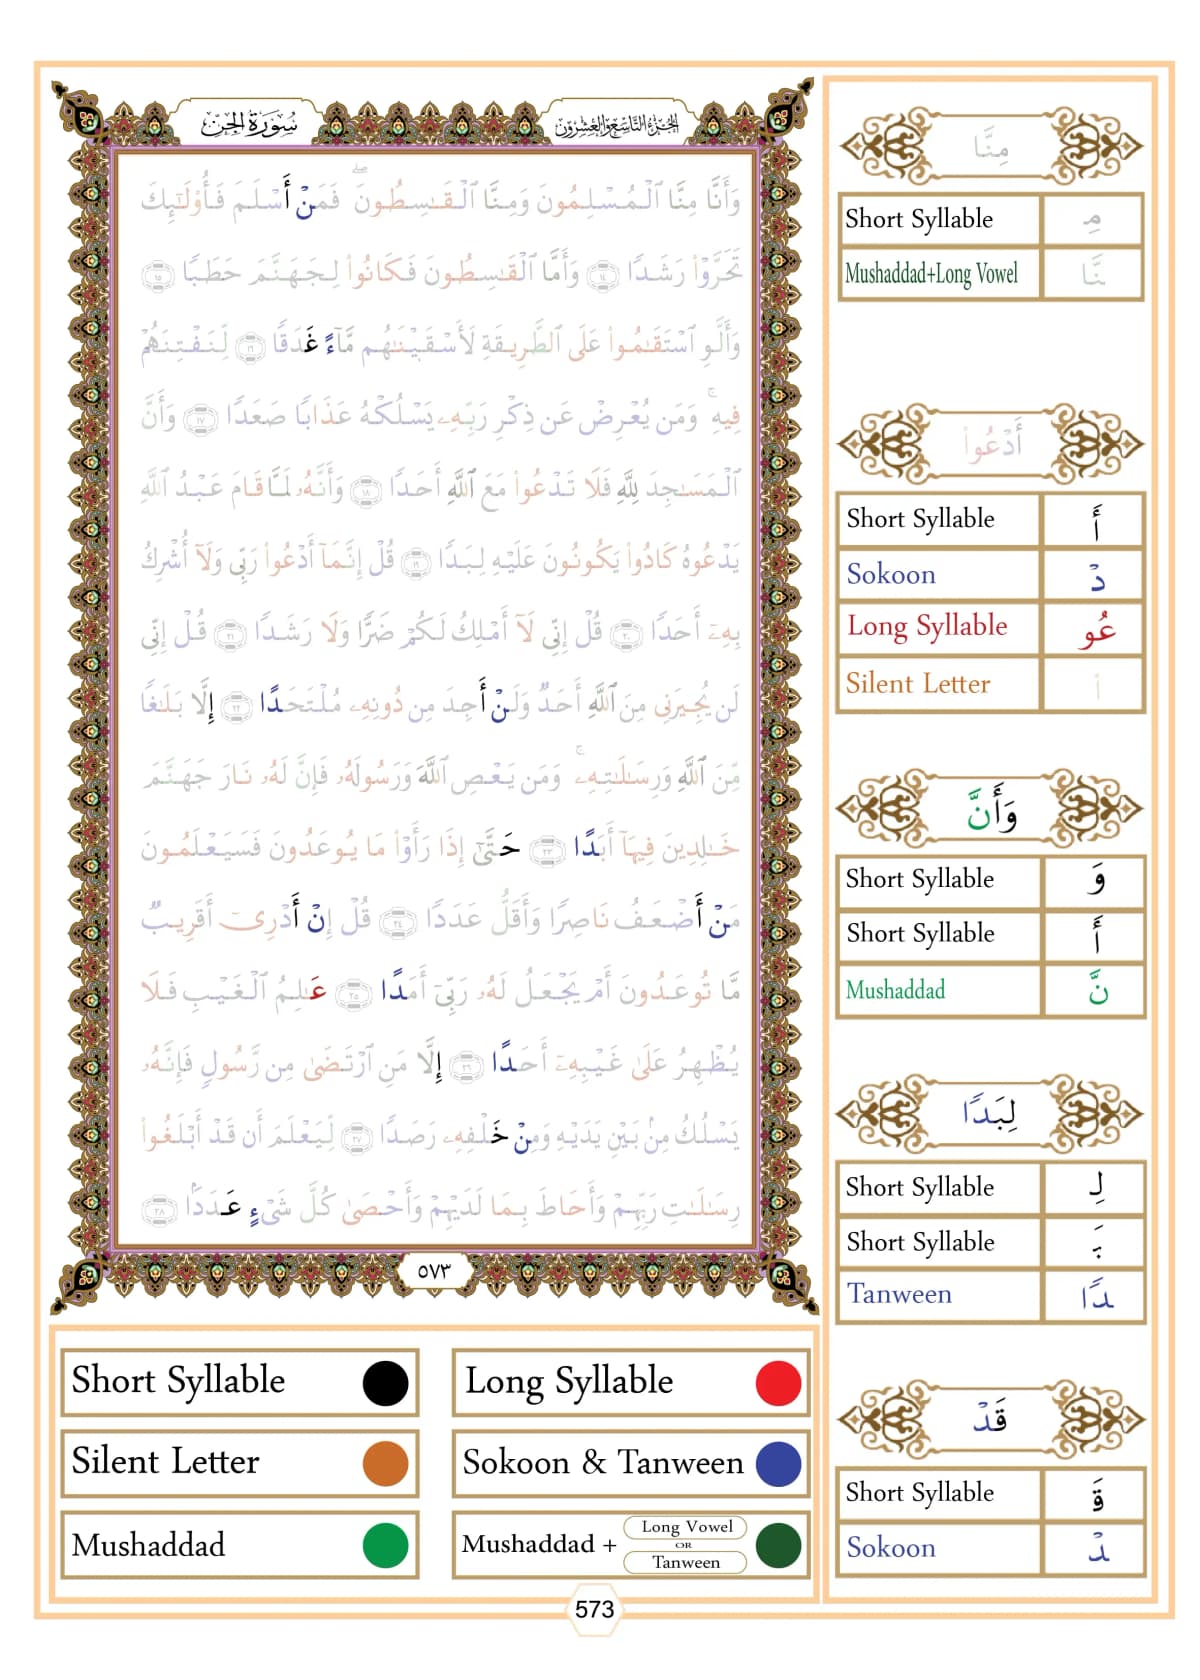 سُورَةُ الجِن
الجُزْءُ التَّاسِعُ وَالعِشْرُونَ
وَأَنَّا مِنَّا ٱلْمُسْلِمُونَ وَمِنَّا ٱلْقَـٰسِطُونَۖ فَمَنْ أَسْلَمَ فَأُو۟لَـٰٓئِكَ
تَحَرَّوْا۟ رَشَدًا ١٤ وَأَمَّا ٱلْقَـٰسِطُونَ فَكَانُوا۟ لِجَهَنَّمَ حَطَبًا ١٥
وَأَلَّوِ ٱسْتَقَـٰمُوا۟ عَلَى ٱلطَّرِيقَةِ لَأَسْقَيْنَـٰهُم مَّآءً غَدَقًا ١٦ لِّنَفْتِنَهُمْ
فِيهِۚ وَمَن يُعْرِضْ عَن ذِكْرِ رَبِّهِۦ يَسْلُكْهُ عَذَابًا صَعَدًا ١٧ وَأَنَّ
ٱلْمَسَـٰجِدَ لِلَّهِ فَلَا تَدْعُوا۟ مَعَ ٱللَّهِ أَحَدًا ١٨ وَأَنَّهُۥ لَمَّا قَامَ عَبْدُ ٱللَّهِ
يَدْعُوهُ كَادُوا۟ يَكُونُونَ عَلَيْهِ لِبَدًا ١٩ قُلْ إِنَّمَآ أَدْعُوا۟ رَبِّى وَلَآ أُشْرِكُ
بِهِۦٓ أَحَدًا ٢٠ قُلْ إِنِّى لَآ أَمْلِكُ لَكُمْ ضَرًّا وَلَا رَشَدًا ٢١ قُلْ إِنِّى
لَن يُجِيرَنِى مِنَ ٱللَّهِ أَحَدٌ وَلَنْ أَجِدَ مِن دُونِهِۦ مُلْتَحَدًا ٢٢ إِلَّا بَلَـٰغًا
مِّنَ ٱللَّهِ وَرِسَـٰلَـٰتِهِۦۚ وَمَن يَعْصِ ٱللَّهَ وَرَسُولَهُۥ فَإِنَّ لَهُۥ نَارَ جَهَنَّمَ
خَـٰلِدِينَ فِيهَآ أَبَدًا ٢٣ حَتَّىٰٓ إِذَا رَأَوْا۟ مَا يُوعَدُونَ فَسَيَعْلَمُونَ
مَنْ أَضْعَفُ نَاصِرًا وَأَقَلُّ عَدَدًا ٢٤ قُلْ إِنْ أَدْرِىٓ أَقَرِيبٌ
مَّا تُوعَدُونَ أَمْ يَجْعَلُ لَهُۥ رَبِّىٓ أَمَدًا ٢٥ عَـٰلِمُ ٱلْغَيْبِ فَلَا
يُظْهِرُ عَلَىٰ غَيْبِهِۦٓ أَحَدًا ٢٦ إِلَّا مَنِ ٱرْتَضَىٰ مِن رَّسُولٍ فَإِنَّهُۥ
يَسْلُكُ مِنۢ بَيْنِ يَدَيْهِ وَمِنْ خَلْفِهِۦ رَصَدًا ٢٧ لِّيَعْلَمَ أَن قَدْ أَبْلَغُوا۟
رِسَـٰلَـٰتِ رَبِّهِمْ وَأَحَاطَ بِمَا لَدَيْهِمْ وَأَحْصَىٰ كُلَّ شَىْءٍ عَدَدًۢا ٢٨
٥٧٣
مِنَّا
Short Syllable مِ
Mushaddad+Long Vowel نَّا
أَدْعُوا۟
Short Syllable أَ
Sokoon دْ
Long Syllable عُو
Silent Letter ا۟
وَأَنَّ
Short Syllable وَ
Short Syllable أَ
Mushaddad نَّ
لِبَدًا
Short Syllable لِ
Short Syllable بَ
Tanween دًا
قَدْ
Short Syllable قَ
Sokoon دْ
Short Syllable
Long Syllable
Silent Letter
Sokoon & Tanween
Mushaddad
Mushaddad + Long Vowel OR Tanween
573